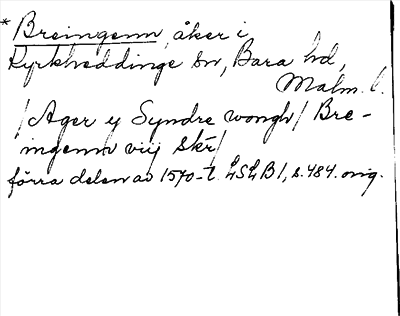 * Breingenn, åker i
Kyrkheddinge sn, Bara hd,
Malm. l.
/Ager y Syndre wongh/ Bre-
ingenn viij skr/
förra delen av 1570-t. LSLB1, s. 484. orig.